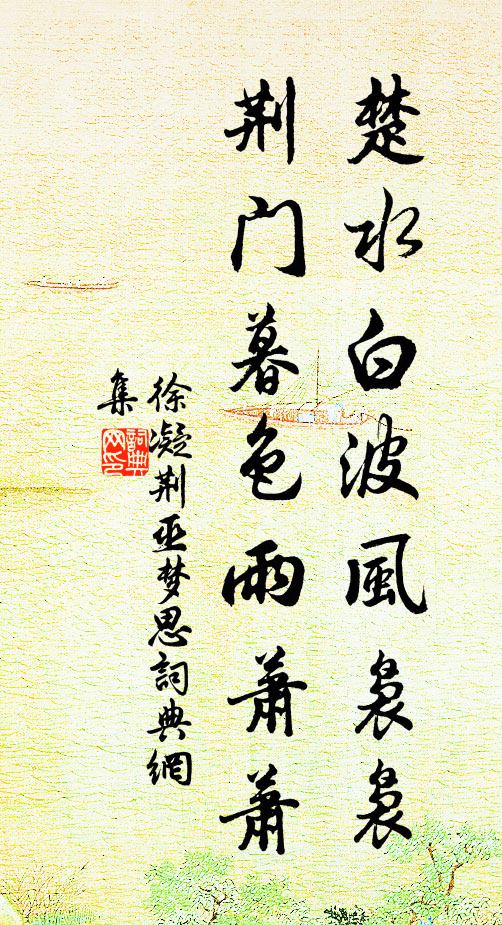 楚水白波風裊裊
荆门暮色雨萧萧
徐凝荆巫梦思詞典網
集
詞典
网印